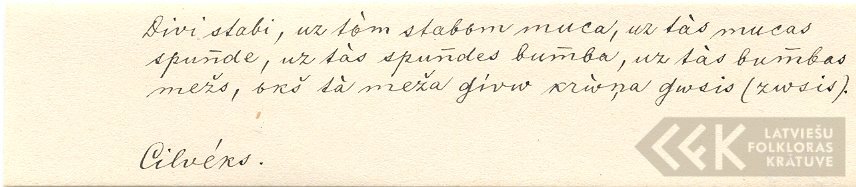 Divi stabi, uz tòm stabom muca, uz tàs mucas
spun̄de, uz tàs spun̄des bum̄ba, uz tàs bum̄bas
mežs, okš tà meža gívw krìwņa gwsis (zwsis).
Cilvéks.
LATVIEŠU
FOLKLORAS
KRĀTUVE